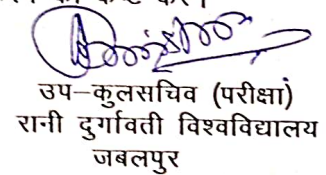 उप–कुलसचिव (परीक्षा)
रानी दुर्गावती विश्वविद्यालय
जबलपुर